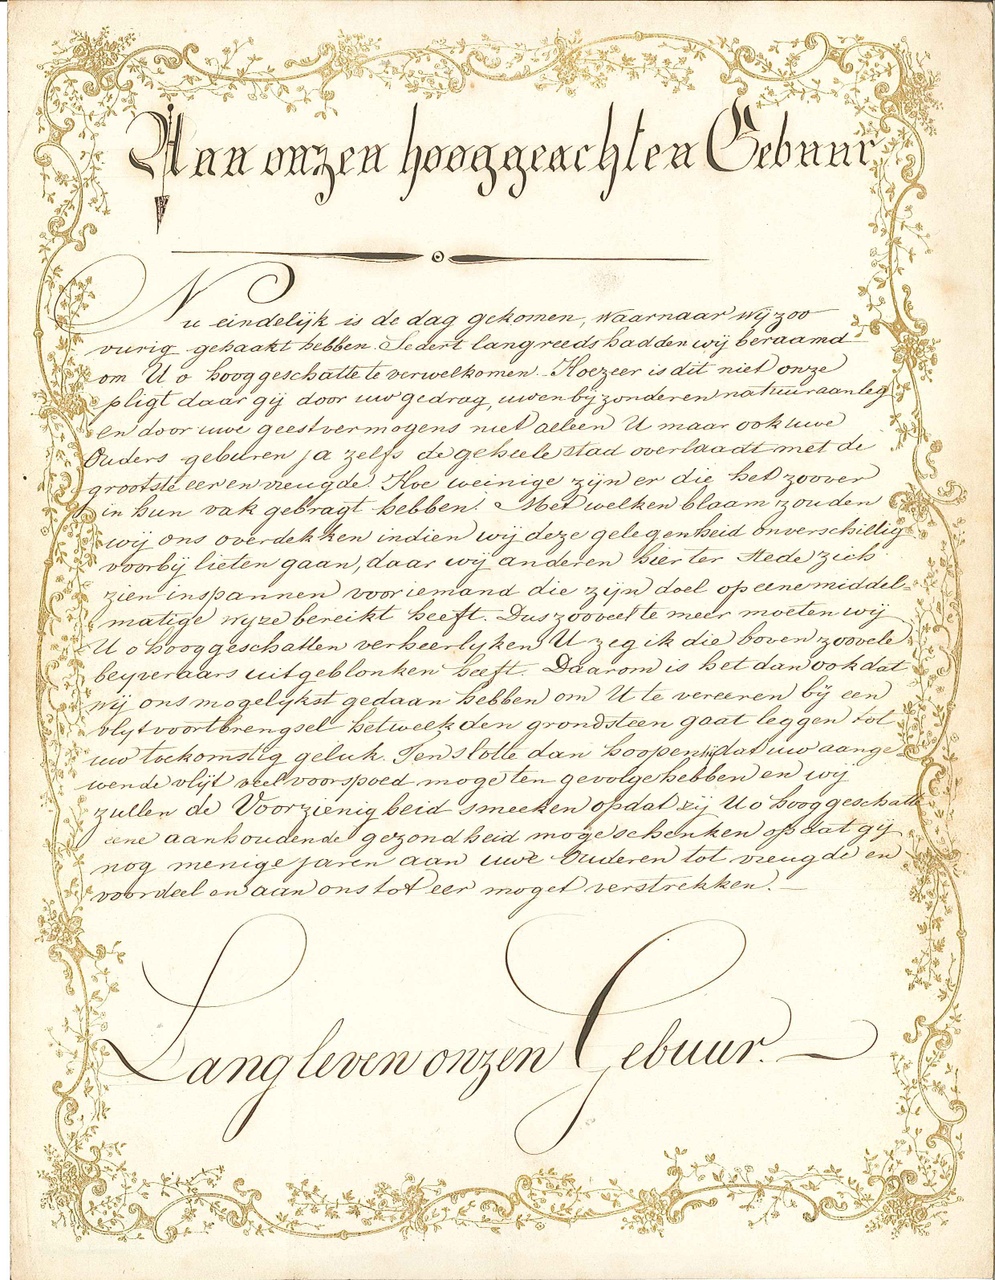 Aan onzen hooggeachten Gebuur
Nu eindelijk is de dag gekomen, waarnaar wij zoo
vurig gehaakt hebben. Sedert lang reeds hadden wij beraamd
om U o hooggeschatte te verwelkomen. Hoezeer is dit niet onze
pligt daar gij door uw gedrag, uwen bijzonderen natuuraanleg
en door uwe geestvermogens niet alleen U maar ook uwe
Ouders geburen ja zelfs de geheele stad overlaadt met de
grootste eer en vreugde. Hoe weinige zijn er die het zoover
in hun vak gebragt hebben! Met welken blaam zouden
wij ons overdekken indien wij deze gelegenheid onverschillig
voorbij lieten gaan, daar wij anderen hier ter Stede zich
zien inspannen voor iemand die zijn doel op eene middel=
matige wyze bereikt heeft. Dus zooveel te meer moeten wij
U o hooggeschatten verheerlyken U zeg ik die boven zoovele
beyveraars uitgeblonken heeft. Daarom is het dan ook dat
wij ons mogelykst gedaan hebben om U te vereeren bij een
vlyt voortbrengsel hetwelk den grondsteen gaat leggen tot
uw toekomstig geluk. Ten slotte dan hoopen wij dat uw aange
wende vlijt veel voorspoed moge ten gevolge hebben en wij
zullen de Voorzienigheid smeeken opdat zij U o hooggeschatte
eene aanhoudende gezondheid moge schenken opdat gij
nog menige jaren aan uwe Ouderen tot vreugde en
voordeel en aan ons tot eer moget verstrekken.
Lang leven onzen Gebuur.